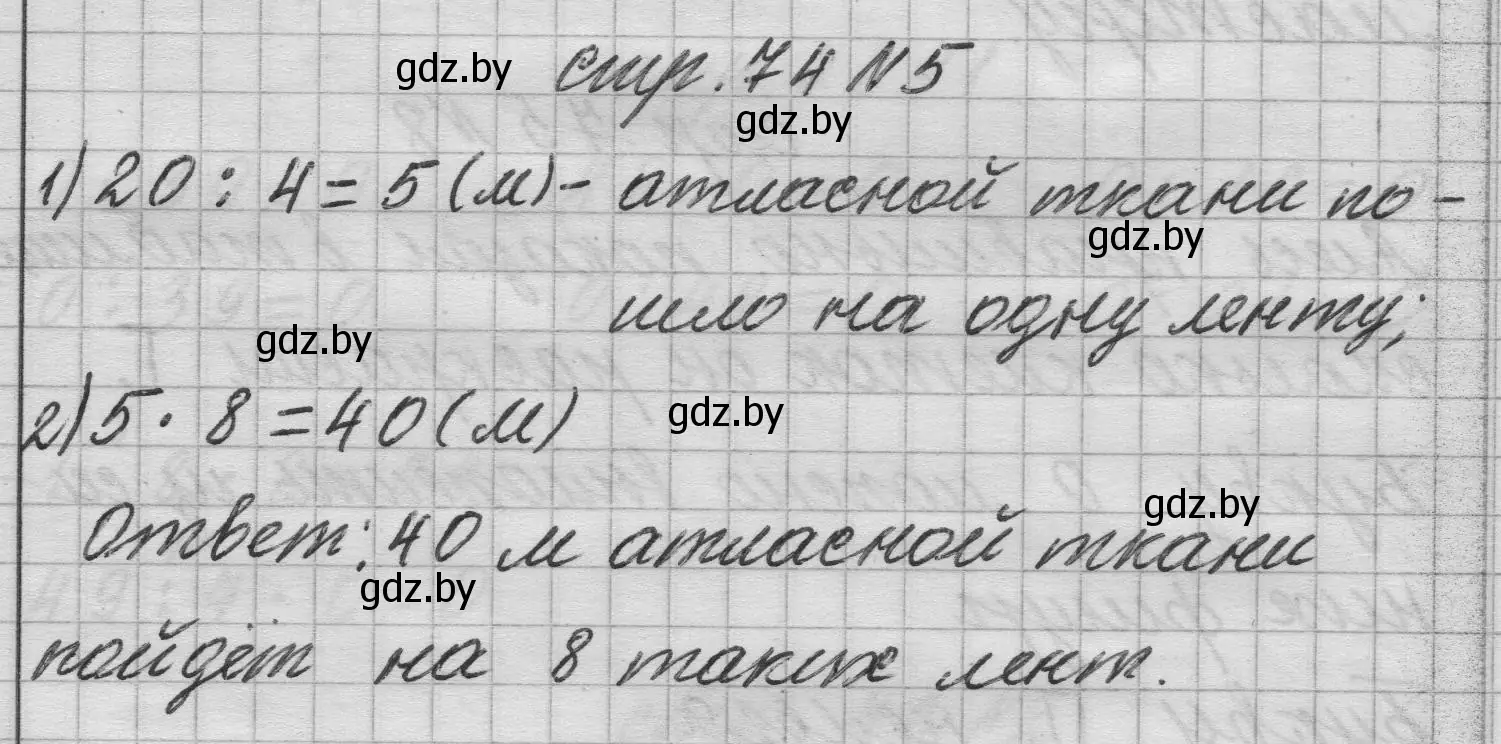 gdz.by стр. 74 N 5
gdz.by
1) 20 : 4 = 5 (м) - атласной ткани по-
gdz.by
шло на одну ленту;
gdz.by
2) 5 · 8 = 40 (м) gdz.by
gdz.by
Ответ: 40 м атласной ткани
gdz.by
пойдёт на 8 таких лент.